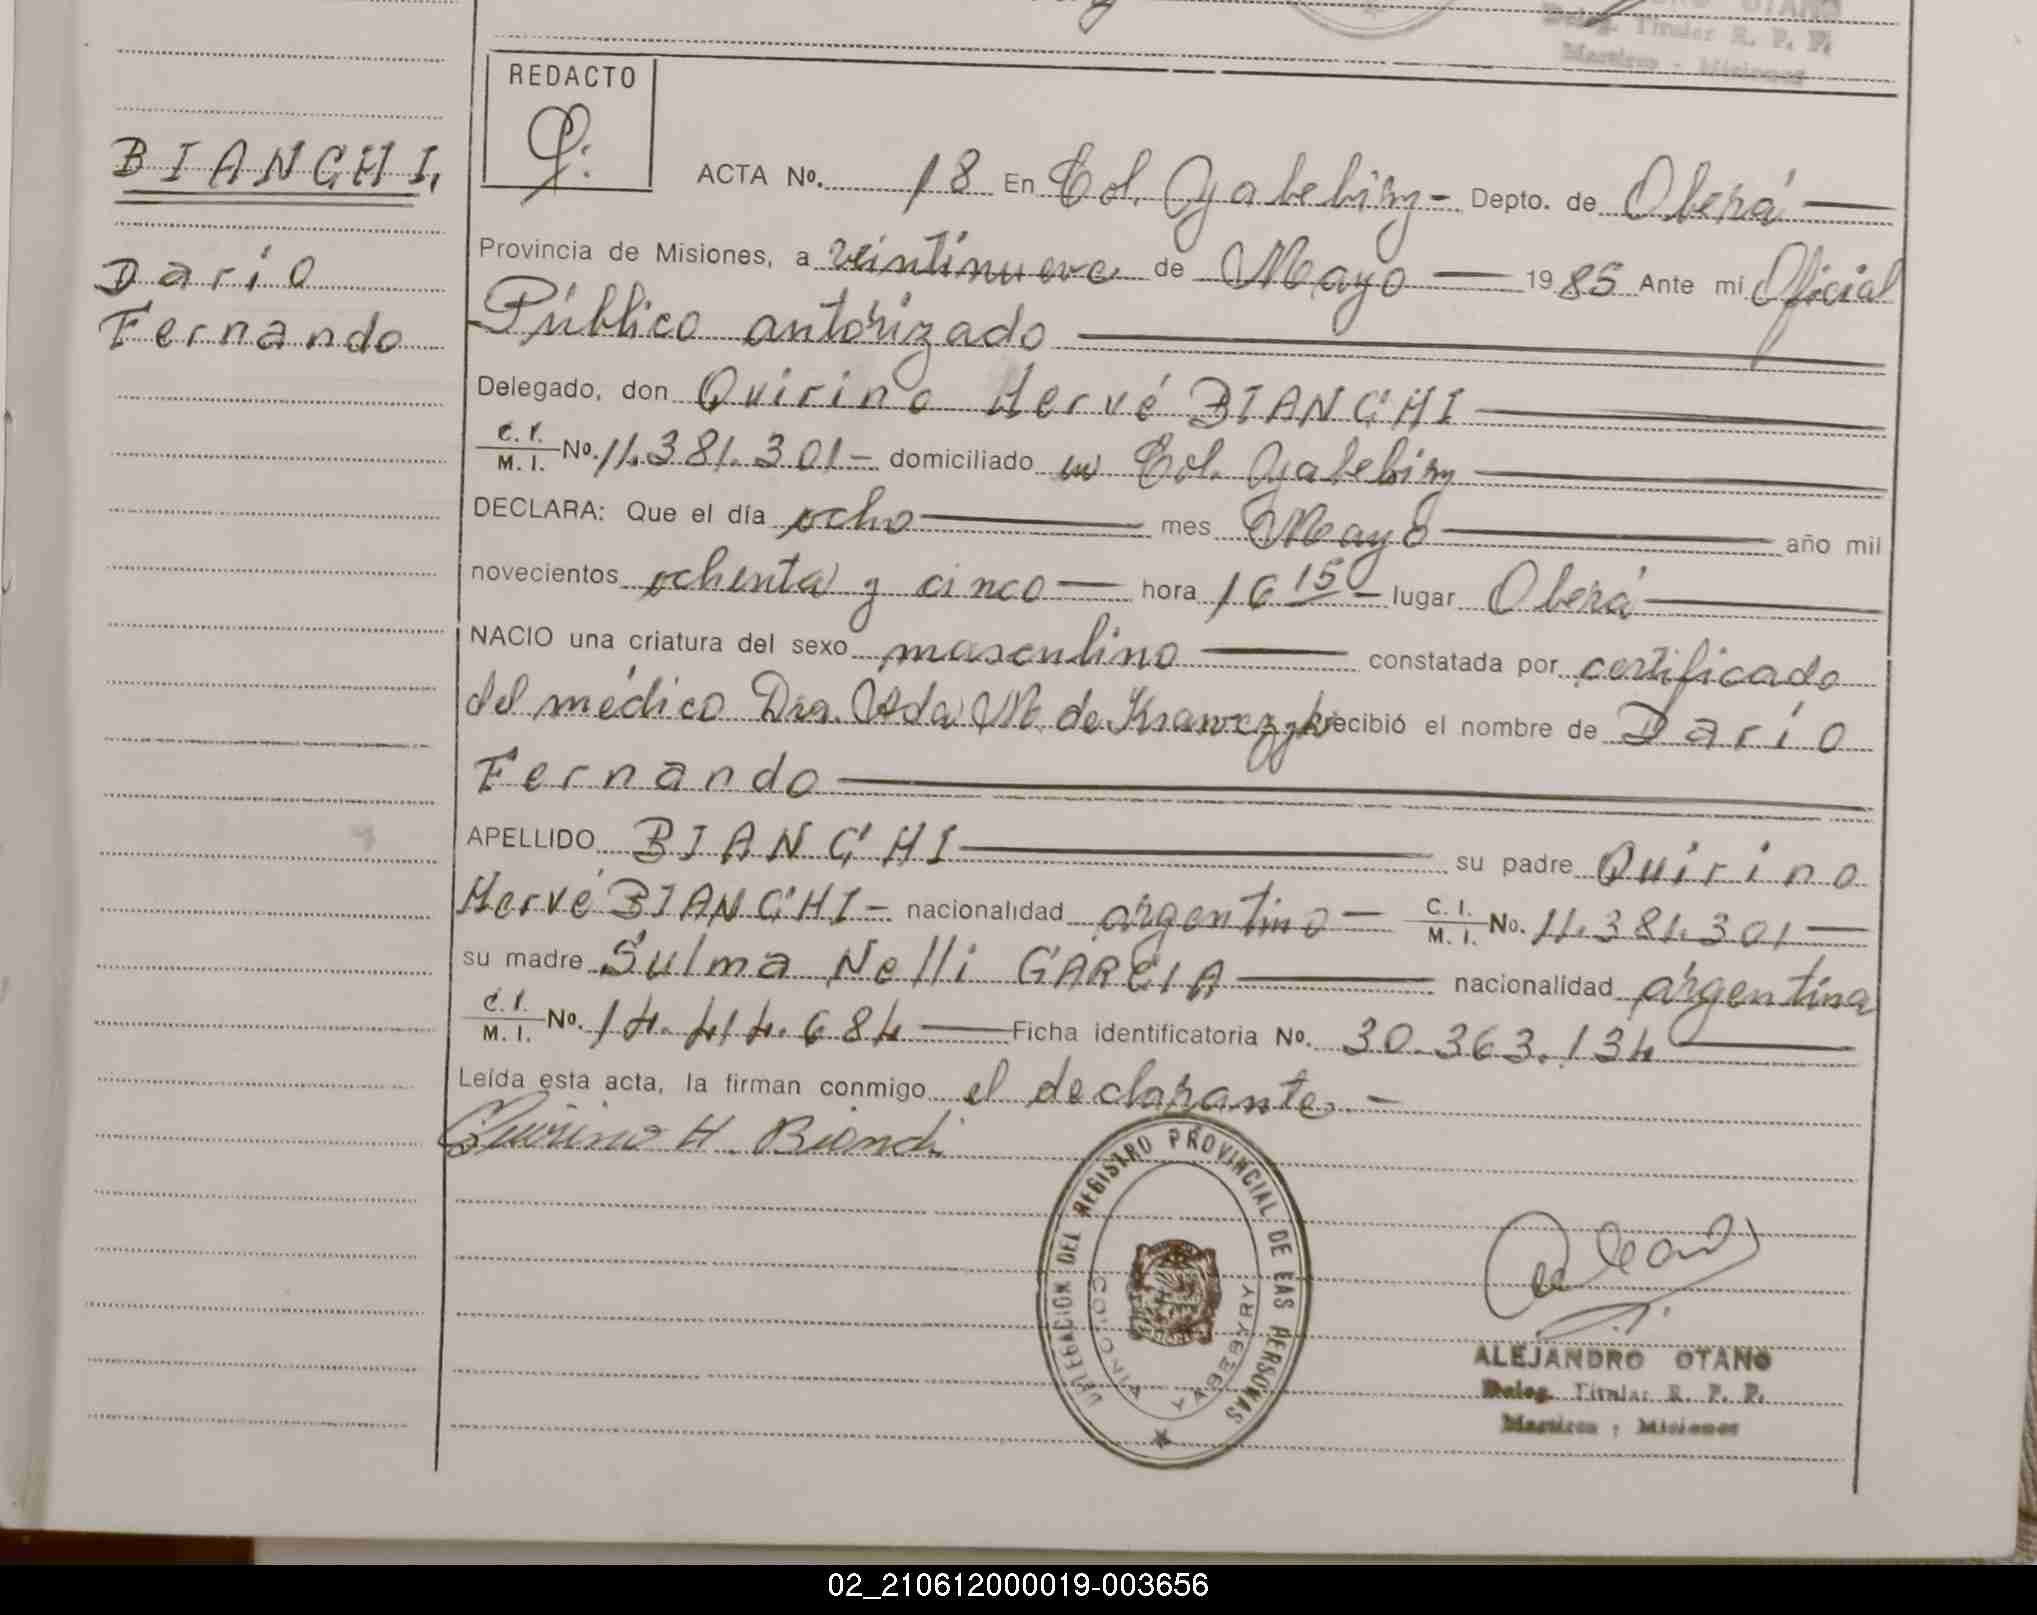 OTAÑO
Deleg. Titular R. P. P.
Martires - Misiones
REDACTO
BIANCHI,
ACTA No. 18 En Col. Yabebiry - Depto. de Oberá
Darío
Provincia de Misiones, a veintinueve de Mayo 1985 Ante mi Oficial
Fernando
Público autorizado
Delegado, don Quirino Hervé BIANCHI
C. I. / M. I. No. 11.381.301 - domiciliado en Col. Yabebiry
DECLARA: Que el día ocho mes Mayo año mil
novecientos ochenta y cinco hora 16 15 - lugar Oberá
NACIO una criatura del sexo masculino constatada por certificado
del médico Dra. M. de recibió el nombre de Darío
Fernando
APELLIDO BIANCHI su padre Quirino
Hervé BIANCHI - nacionalidad argentino - C. I. / M. I. No. 11.381.301
su madre Sulma Nelli GARCIA nacionalidad argentina
C. I. / M. I. No. 14.414.684 Ficha identificatoria No. 30.363.134
Leída esta acta, la firman conmigo el declarante. -
Quirino H. Bianchi
DELEGACION DEL REGISTRO PROVINCIAL DE LAS PERSONAS
COLONIA YABEBYRY
ALEJANDRO OTAÑO
Deleg. Titular R. P. P.
Martires - Misiones
02_210612000019-003656